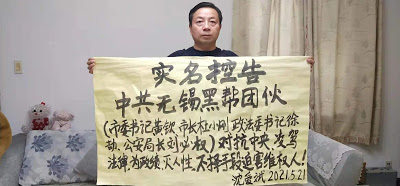 实名控告
中共无锡黑帮团伙
(市委书记黄钦 市长杜小刚 政法委书记徐
劼 公安局长刘必权) 对抗中央 发写
法律 为政绩 灭人性 不择手段迫害维权人!
沈爱斌 2021.5.21